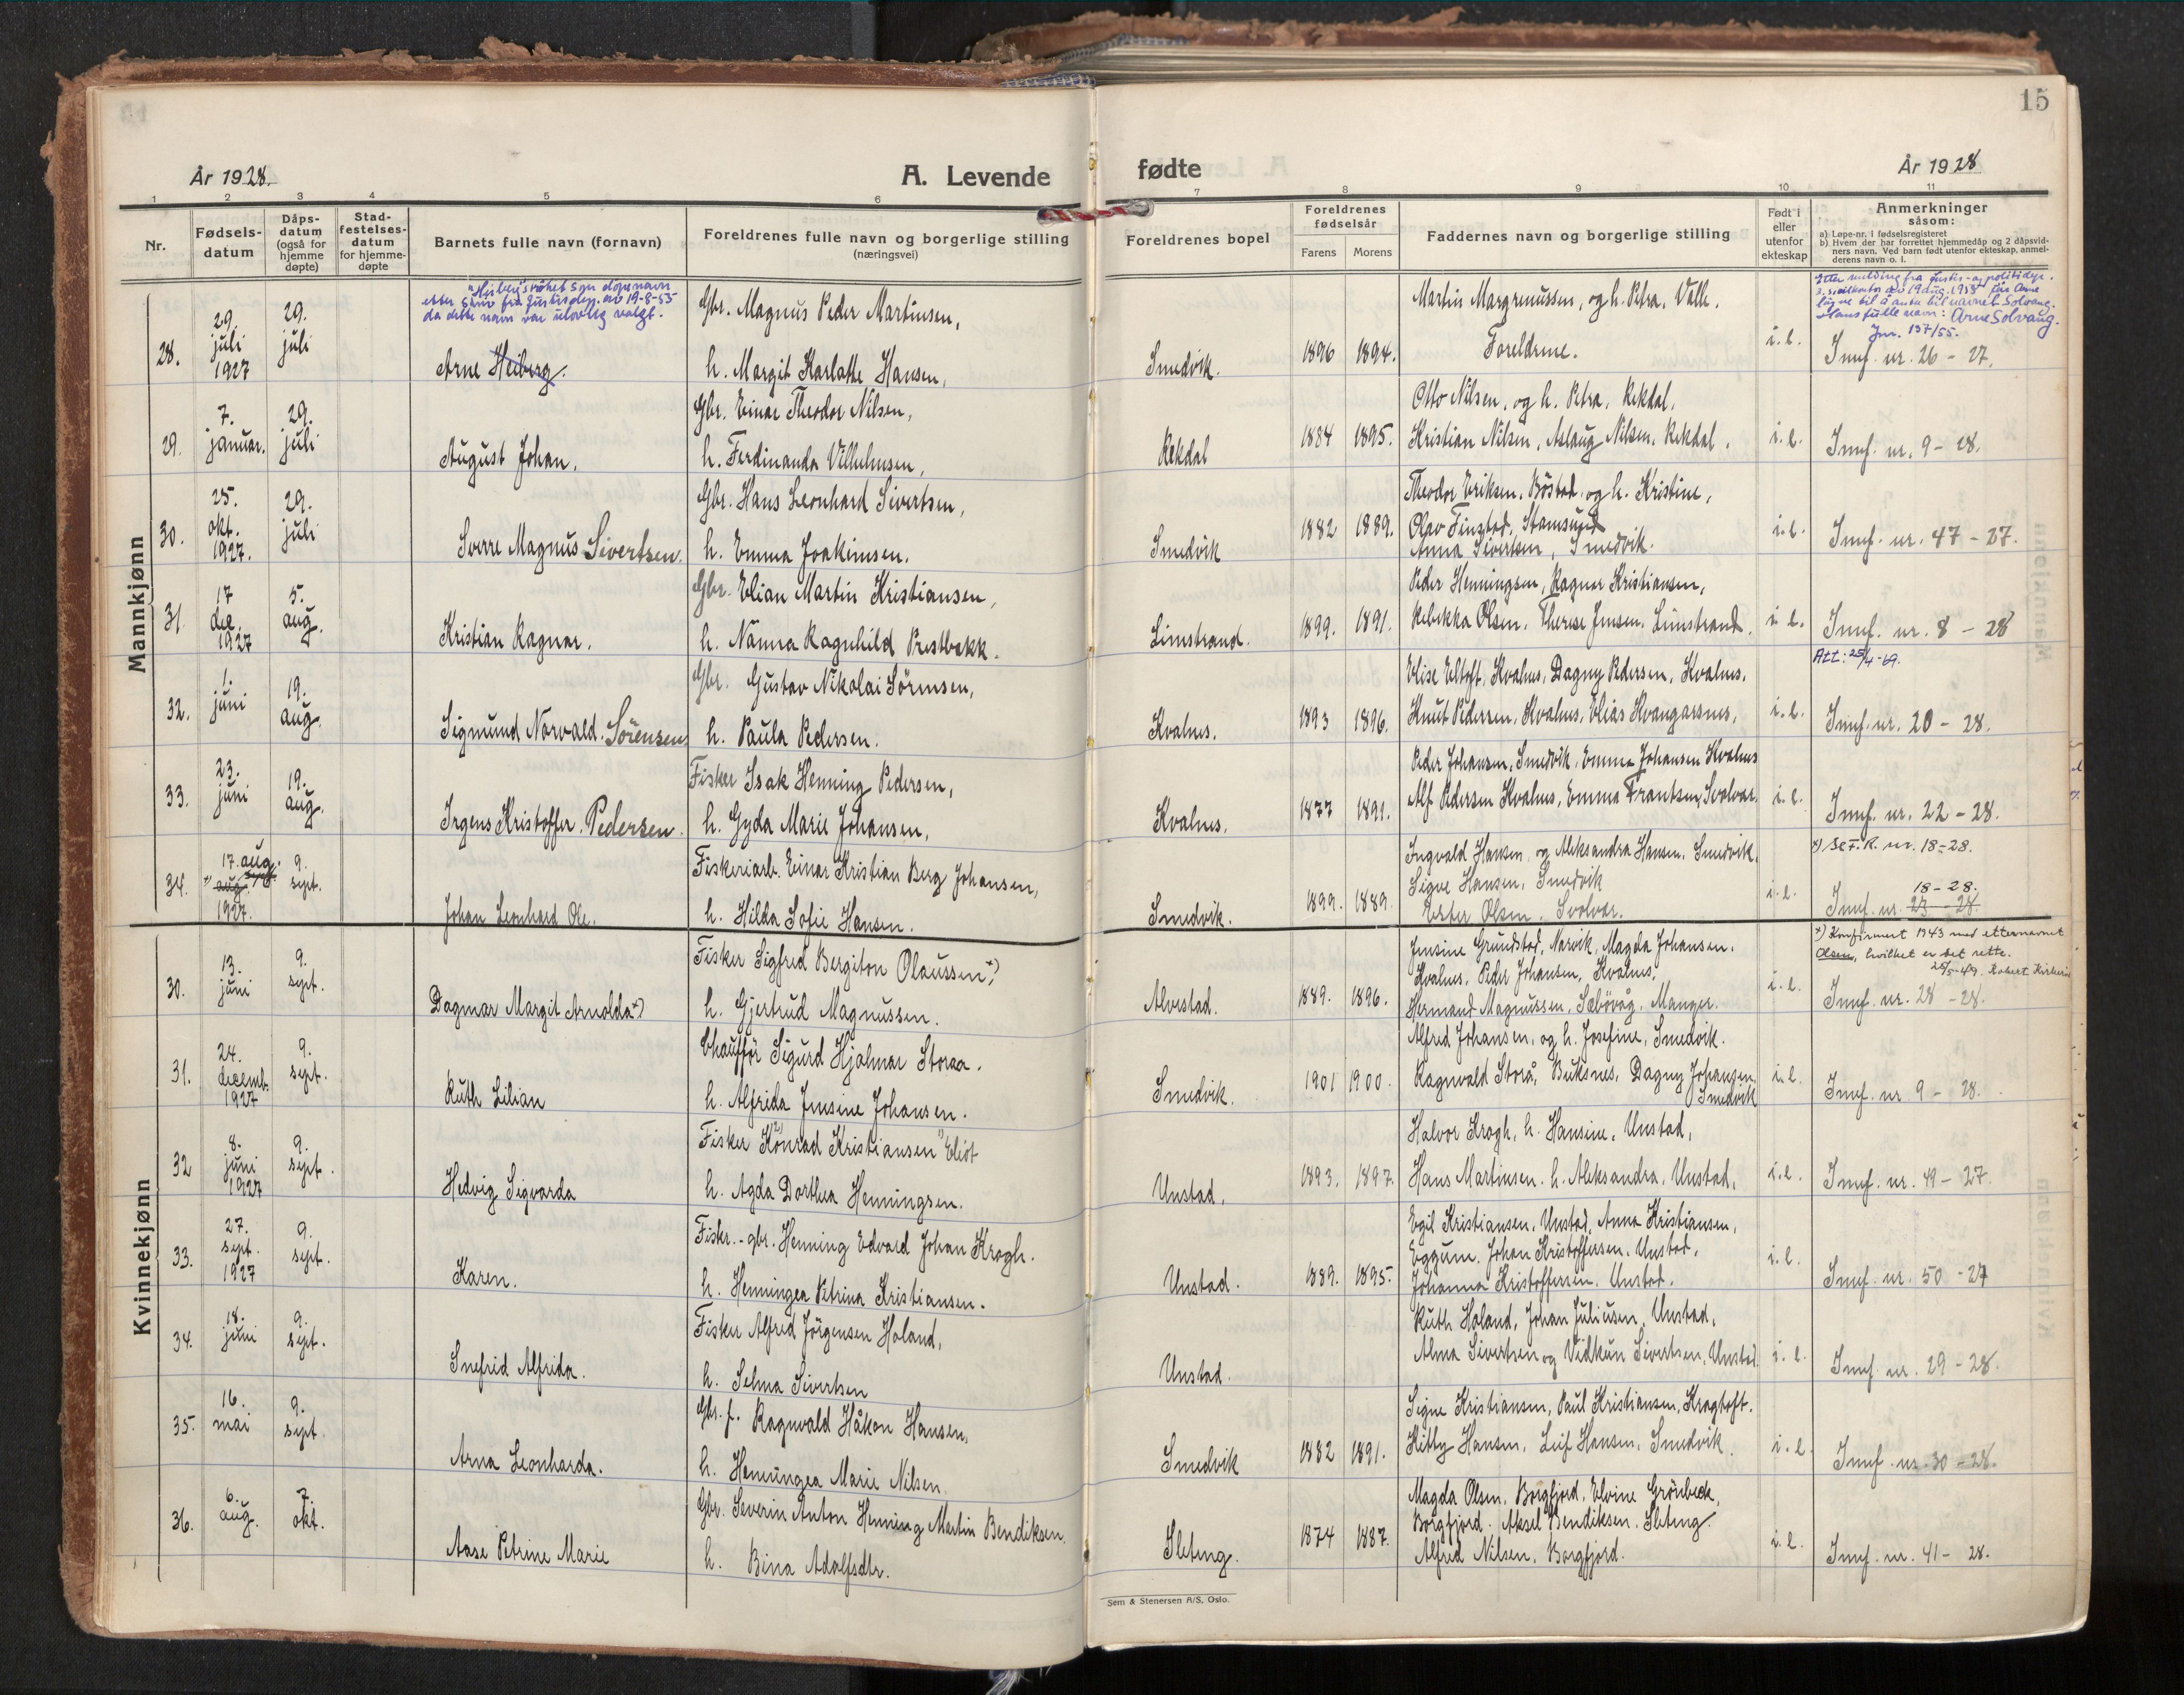 15
År 1928.
A. Levende
fødte
År 1928
1 2 3 4 5 6 7 8 9 10 11
Nr.
Fødsels-
datum
Dåps-
datum
(også for
hjemme
døpte)
Stad-
festelses-
datum
for hjemme-
døpte
Barnets fulle navn (fornavn)
Foreldrenes fulle navn og borgerlige stilling
(næringsvei)
Foreldrenes bopel
Foreldrenes
fødselsår
Farens Morens
Faddernes navn og borgerlige stilling
Født i
eller
utenfor
ekteskap
Anmerkninger
såsom:
a) Løpe-nr. i fødselsregisteret
b) Hvem der har forrettet hjemmedåp og 2 dåpsvid-
ners navn. Ved barn født utenfor ekteskap, anmel-
derens navn o. l.
Mannkjønn
28.
29.
juli
1927
29.
juli
"Heiberg" strøket som døpenavn
etter skriv fra Justisdep. av 19-8-55
da dette navn var ulovlig valgt.
Arne Heiberg.
Gbr. Magnus Peder Martinsen,
h. Margit Karlotte Hansen,
Smedvik.
1896 1894.
Martin Margremussen, og h. Petra, Valle.
Foreldrene.
i.e.
Etter melding fra Justis- og politidep.
av 19 aug. 1955 får Arne
til å anta tilnavnet Solvang.
Hans fulle navn: Arne Solvang.
Jnr. 137/55.
Innf. nr. 26 - 27.
29.
7.
januar.
29.
juli
August Johan.
Gbr. Einar Theodor Nilsen,
h. Ferdinanda Villuhmsen,
Rekdal
1884 1895.
Otto Nilsen, og h. Petra, Rekdal.
Kristian Nilsen, Aslaug Nilsen, Rekdal.
i.e.
Innf. nr. 9 - 28.
30.
25.
okt.
1927.
29.
juli
Sverre Magnus Sivertsen.
Gbr. Hans Leonhard Sivertsen,
h. Emma Joakimsen.
Smedvik
1882 1889.
Theodor Eriksen, Böstad, og h. Kristine,
Olav Finstad, Stamsund
Anna Sivertsen, Smedvik.
i.e.
Innf. nr. 47 - 27.
31.
17
des.
1927
5.
aug.
Kristian Ragnar.
Gbr. Elian Martin Kristiansen,
h. Nanna Ragnhild Prestbakk.
Limstrand.
1899. 1891.
Peder Henningsen, Ragnar Kristiansen,
Rebekka Olsen, Therese Jensen, Limstrand.
i. e.
Innf. nr. 8 - 28
32.
1.
juni
19.
aug.
Sigmund Norvald. Sörensen
Gbr. Gustav Nikolai Sörensen,
h. Paula Pedersen.
Kvalnes.
1893 1896.
Elise Eltoft, Kvalnes, Dagny Pedersen, Kvalnes.
Knut Pedersen, Kvalnes, Elias Kvangarsnes,
i.e.
Att: 25/4-69.
Innf. nr. 20 - 28.
33.
23.
juni
19.
aug.
Irgens Kristoffer. Pedersen.
Fisker Isak Henning Pedersen,
h. Gyda Marie Johansen,
Kvalnes.
1877 1891.
Peder Johansen, Smedvik, Emma Johansen Kvalnes
Alf Pedersen Kvalnes, Emma Frantsen, Svolvær.
i.e.
Innf. nr. 22 - 28.
34.
17. aug.
x) aug. sept.
1927.
9.
sept.
Johan Leonhard Ole.
Fiskeriarb. Einar Kristian Berg Johansen,
h. Hilda Sofie Hansen.
Smedvik.
1899. 1889.
Ingvald Hansen og Aleksandra Hansen, Smedvik.
Signe Hansen, Smedvik
Ester Olsen. Svolvær.
i.e.
x) se F.R. nr. 18-28.
18-28.
Innf. nr. 23 - 28.
Kvinnekjønn
30.
13.
juni
9.
sept.
Dagmar Margit Arnolda x)
Fisker Sigfred Bergiton Olaussen x)
h. Gjertrud Magnussen.
Alvestad.
1889. 1896.
Jensine Grundstad, Narvik, Magda Johansen.
Kvalnes, Peder Johansen, Kvalnes,
Hermand Magnussen, Sæbövåg, Manger.
i.e.
x) Konfirmert 1943 med etternavnet
Olsen, hvilket er det rette.
26/5-49. Robert Kirkeris
Innf. nr. 28 - 28.
31.
24.
decemb.
1927
9.
sept.
Ruth Lilian
Chaufför Sigurd Hjalmar Storaa.
h. Alfrida Jensine Johansen.
Smedvik.
1901 1900.
Alfred Johansen, og h. Josefine, Smedvik.
Ragnvald Storå, Buksnes, Dagny Johansen,
Smedvik
i.e.
Innf. nr. 9 - 28.
32
8.
juni
1927
9.
sept.
Hedvig Sigvarda
Fisker Konrad Kristiansen Eliot
h. Agda Dorthea Henningsen.
Unstad.
1893. 1897.
Halvor Krogh, h. Hansine, Unstad,
Hans Martinsen. h. Aleksandra, Unstad.
i.e.
Innf. nr. 49 - 27.
33.
27.
sept.
1927
9.
sept.
Karen.
Fiskr.-gbr. Henning Edvard Johan Krogh.
h. Henningea Petrina Kristiansen.
Unstad.
1889. 1895.
Egil Kristiansen, Unstad, Anna Kristiansen,
Eggum, Johan Kristoffersen, Unstad,
Johanna Kristoffersen, Unstad.
i.e.
Innf. nr. 50 - 27
34.
18.
juni
9.
sept.
Snefrid Alfrida.
Fisker Alfred Jörgensen Holand,
h. Selma Sivertsen
Unstad.
Ruth Holand, Johan Juliusen, Unstad,
Alma Sivertsen og Vidkun Sivertsen, Unstad.
i.e.
Innf. nr. 29 - 28.
35.
16.
mai
9.
sept.
Arna Leonharda.
Gbr. f. Ragnvald Håkon Hansen,
h. Henningea Marie Nilsen.
Smedvik
1882 1891.
Signe Kristiansen, Paul Kristiansen, Kragtoft.
Kitty Hansen, Leif Hansen, Smedvik.
i.e.
Innf. nr. 30 - 28.
36.
6.
aug.
7.
okt.
Aase Petrine Marie
Gbr. Severin Anton Henning Martin Bendiksen.
h. Bina Adolfsdtr.
Sleteng.
1874 1887.
Magda Olsen, Borgfjord, Elvine Grönbeck,
Borgfjord. Aksel Bendiksen. Sleteng.
Alfred Nilsen, Borgfjord.
i.e.
Innf. nr. 41 - 28.
Sem & Stenersen A/S, Oslo.